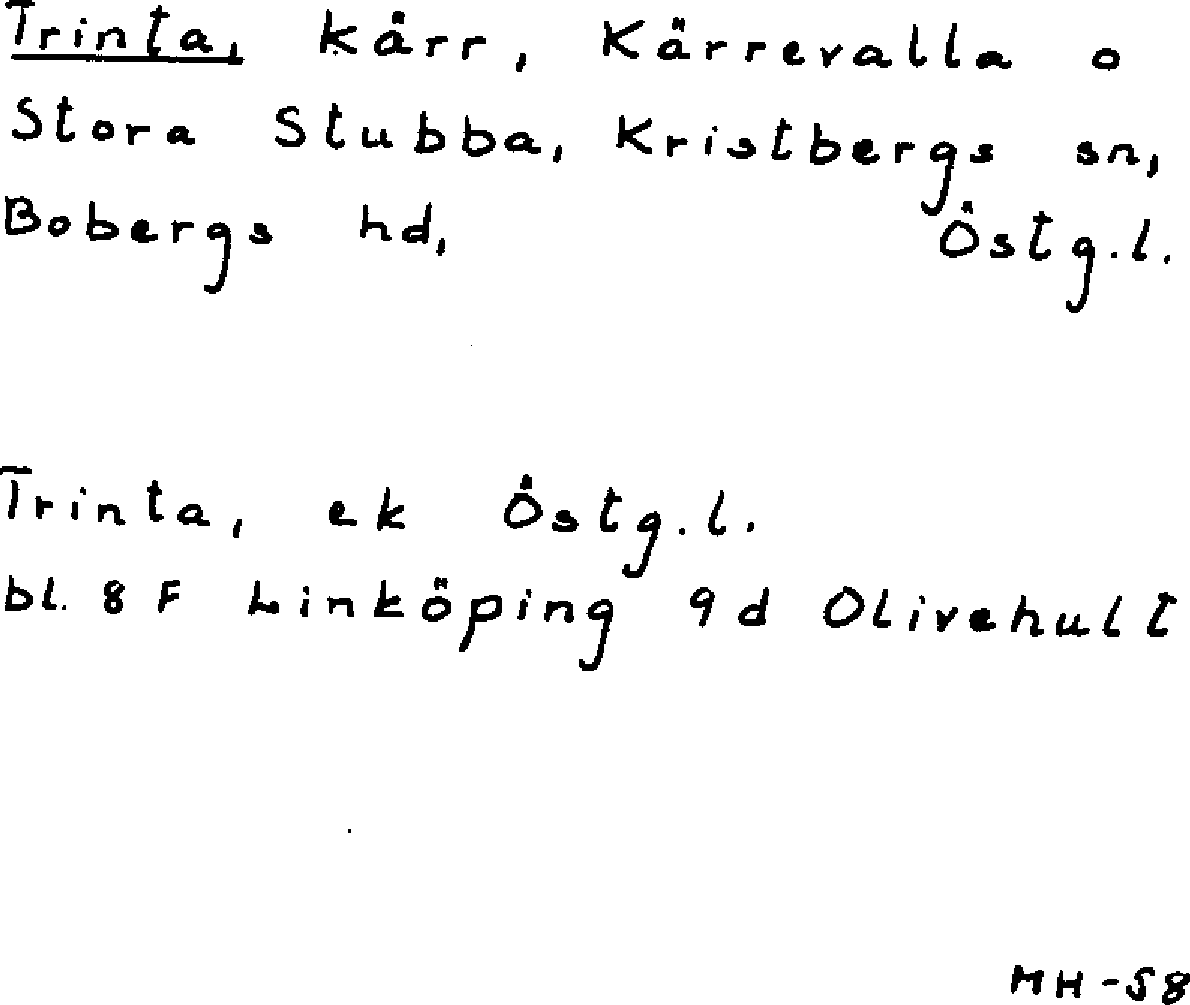 Trinta, kärr, Kärrevalla o
Stora Stubba, Kristbergs sn,
Bobergs hd, Östg.l.
Trinta, ek Östg.l.
bl. 8 F Linköping 9d Olivehult
MH-58